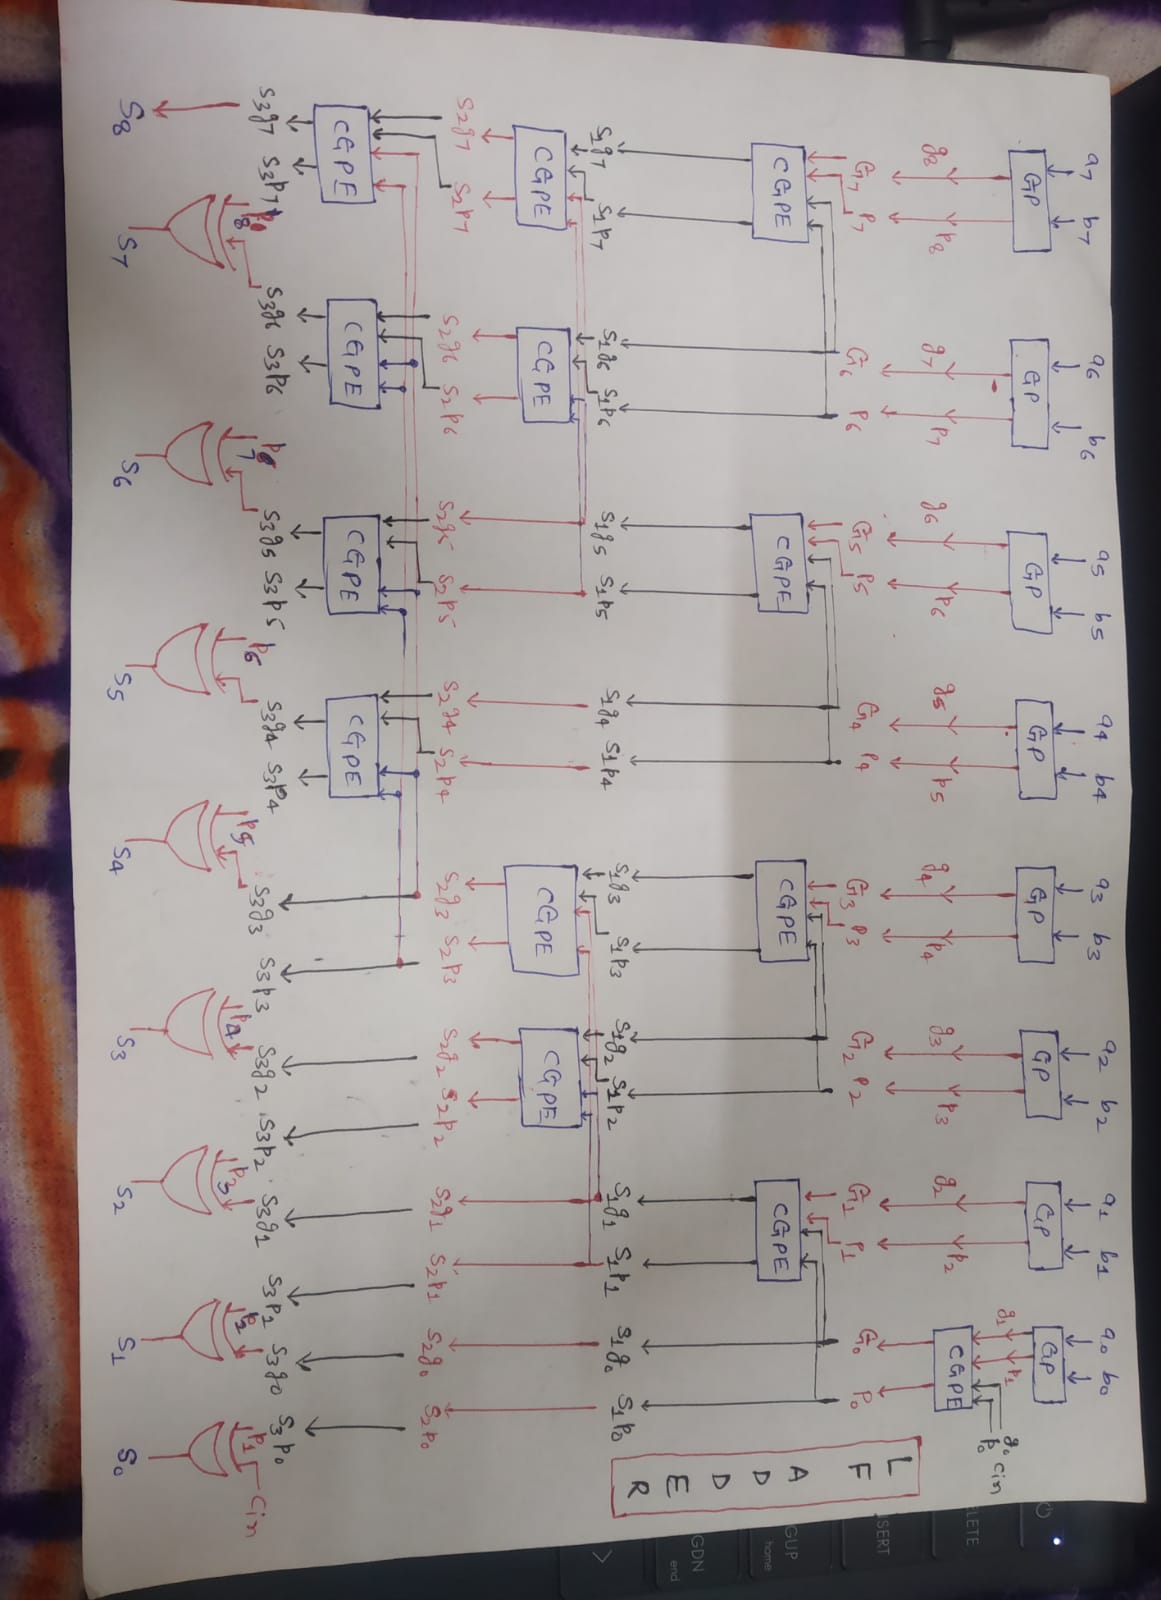 a7 b7 a6 b6 a5 b5 a4 b4 a3 b3 a2 b2 a1 b1 a0 b0
GP GP GP GP GP GP GP GP
g1 p1 g0 p0 Cin
CGPE
g8 p8 g7 p7 g6 p6 g5 p5 g4 p4 g3 p3 g2 p2
G7 P7 G6 P6 G5 P5 G4 P4 G3 P3 G2 P2 G1 P1 G0 P0
CGPE CGPE CGPE CGPE
S1g7 S1p7 S1g6 S1p6 S1g5 S1p5 S1g4 S1p4 S1g3 S1p3 S1g2 S1p2 S1g1 S1p1 S1g0 S1p0
CGPE CGPE CGPE CGPE
S2g7 S2p7 S2g6 S2p6 S2g5 S2p5 S2g4 S2p4 S2g3 S2p3 S2g2 S2p2 S2g1 S2p1 S2g0 S2p0
CGPE CGPE CGPE CGPE
S3g7 S3p7 S3g6 S3p6 S3g5 S3p5 S3g4 S3p4 S3g3 S3p3 S3g2 S3p2 S3g1 S3p1 S3g0 S3p0
P8 P7 P6 P5 P4 P3 P2 P1 Cin
S8 S7 S6 S5 S4 S3 S2 S1 S0
LF ADDER
LETE
SERT
GUP
home
GDN
end